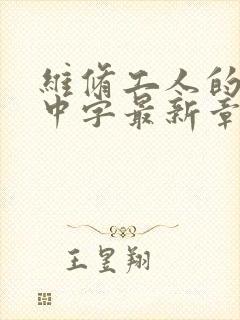 維脩工人的
中字最新章
王昱翔